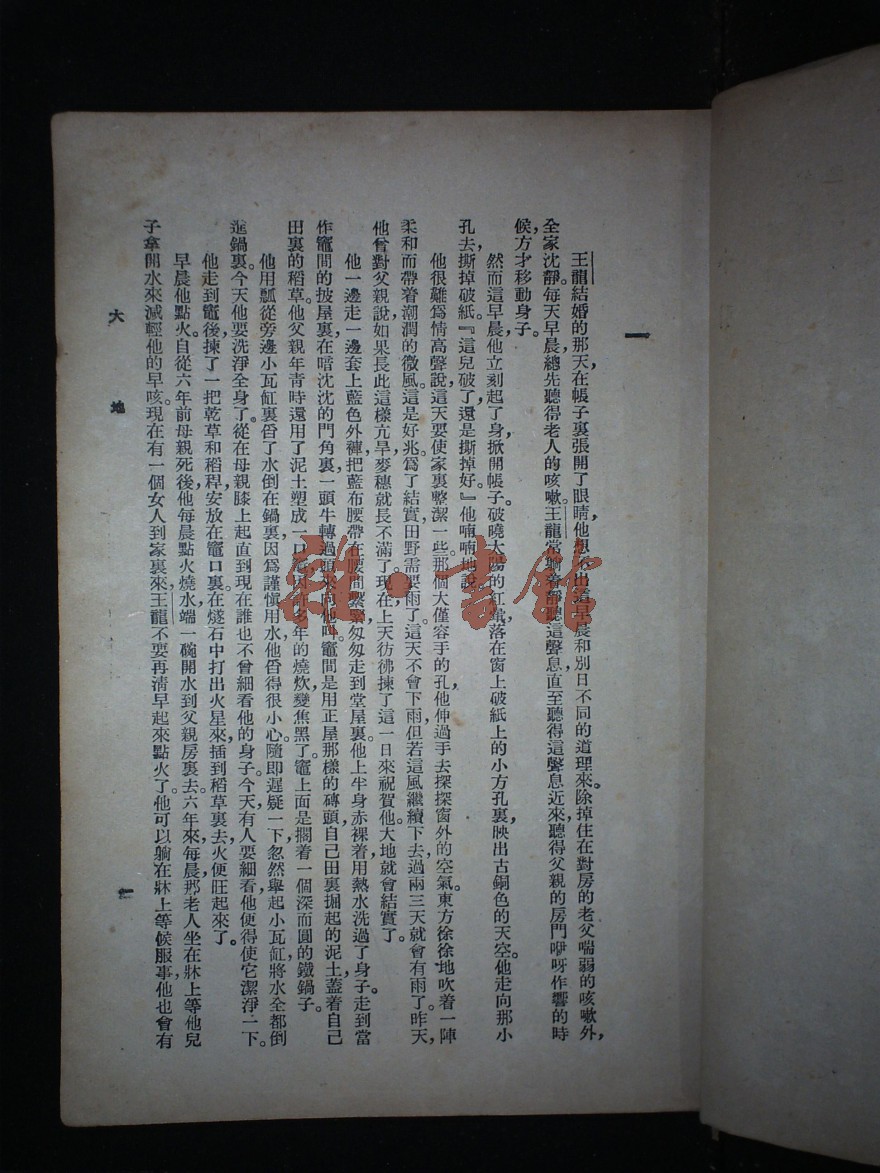 一
王龍結婚的那天，在帳子裏張開了眼睛，他想不出這早晨和別日不同的道理來。除掉住在對房的老父喘弱的咳嗽外，
全家沈靜。每天早晨，總先聽得老人的咳嗽。王龍常躺着靜聽這聲息，直至聽得這聲息近來，聽得父親的房門咿呀作響的時
候，方才移動身子。
然而這早晨，他立刻起了身，掀開帳子。破曉太陽的紅 落在窗上破紙上的小方孔裏，映出古銅色的天空。他走向那小
孔去，撕掉破紙。『這兒破了，還是撕掉好。』他喃喃地說。
他很難爲情高聲說，這天要使家裏整潔一些。那個大僅容手的孔，他伸過手去探探窗外的空氣。東方徐徐地吹着一陣
柔和而帶着潮潤的微風。這是好兆。爲了結實，田野需要雨了。這天不會下雨，但若這風繼續下去，過兩三天就會有雨了。昨天，
他曾對父親說，如果長此這樣亢旱，麥穗就長不滿了。現在上天彷彿揀了這一日來祝賀他。大地就會結實了。
他一邊走，一邊套上藍色外褲，把藍布腰帶在腰間繫緊，匆匆走到堂屋裏。他上半身赤裸着，用熱水洗過了身子。走到當
作竈間的披屋裏，在暗沈沈的門角裏，一頭牛轉過頭來，向他叫。竈間是用正屋那樣的磚頭，自己田裏掘起的泥土，蓋着自己
田裏的稻草。他父親年青時，還用了泥土，塑成一口竈，因許多年的燒炊，變焦黑了。竈上面是擱着一個深而圓的鐵鍋子。
他用瓢從旁邊小瓦缸裏舀了水，倒在鍋裏，因爲謹愼用水，他舀得很小心。隨即遲疑一下，忽然舉起小瓦缸，將水全都倒
進鍋裏。今天他要洗淨全身了。從在母親膝上起直到現在，誰也不曾細看他的身子。今天，有人要細看他，便得使它潔淨一下。
他走到竈後，揀了一把乾草和稻稈，安放在竈口裏，在燧石中打出火星來，插到稻草裏去，火便旺起來了。
早晨他點火。自從六年前母親死後，他每晨點火燒水，端一碗開水到父親房裏去。六年來，每晨，那老人坐在牀上，等他兒
子拿開水來減輕他的早咳。現在有一個女人到家裏來，王龍不要再淸早起來點火了。他可以躺在牀上等候服事，他也會有
大 地
一
雜·書館